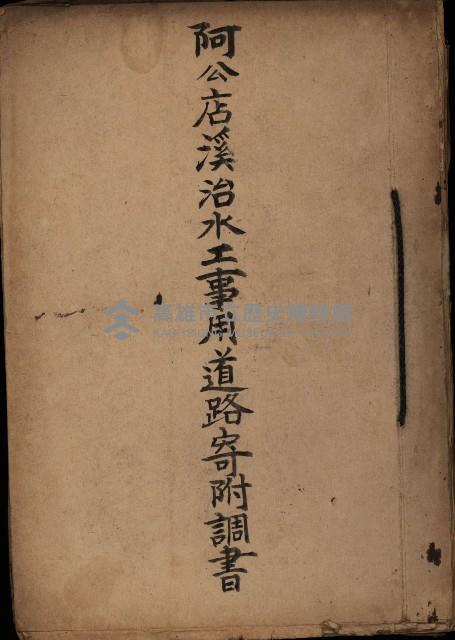 阿公店溪治水工事用道路寄附調書
高雄市立歷史博物館
KAOHSIUNG MUSEUM OF HISTORY